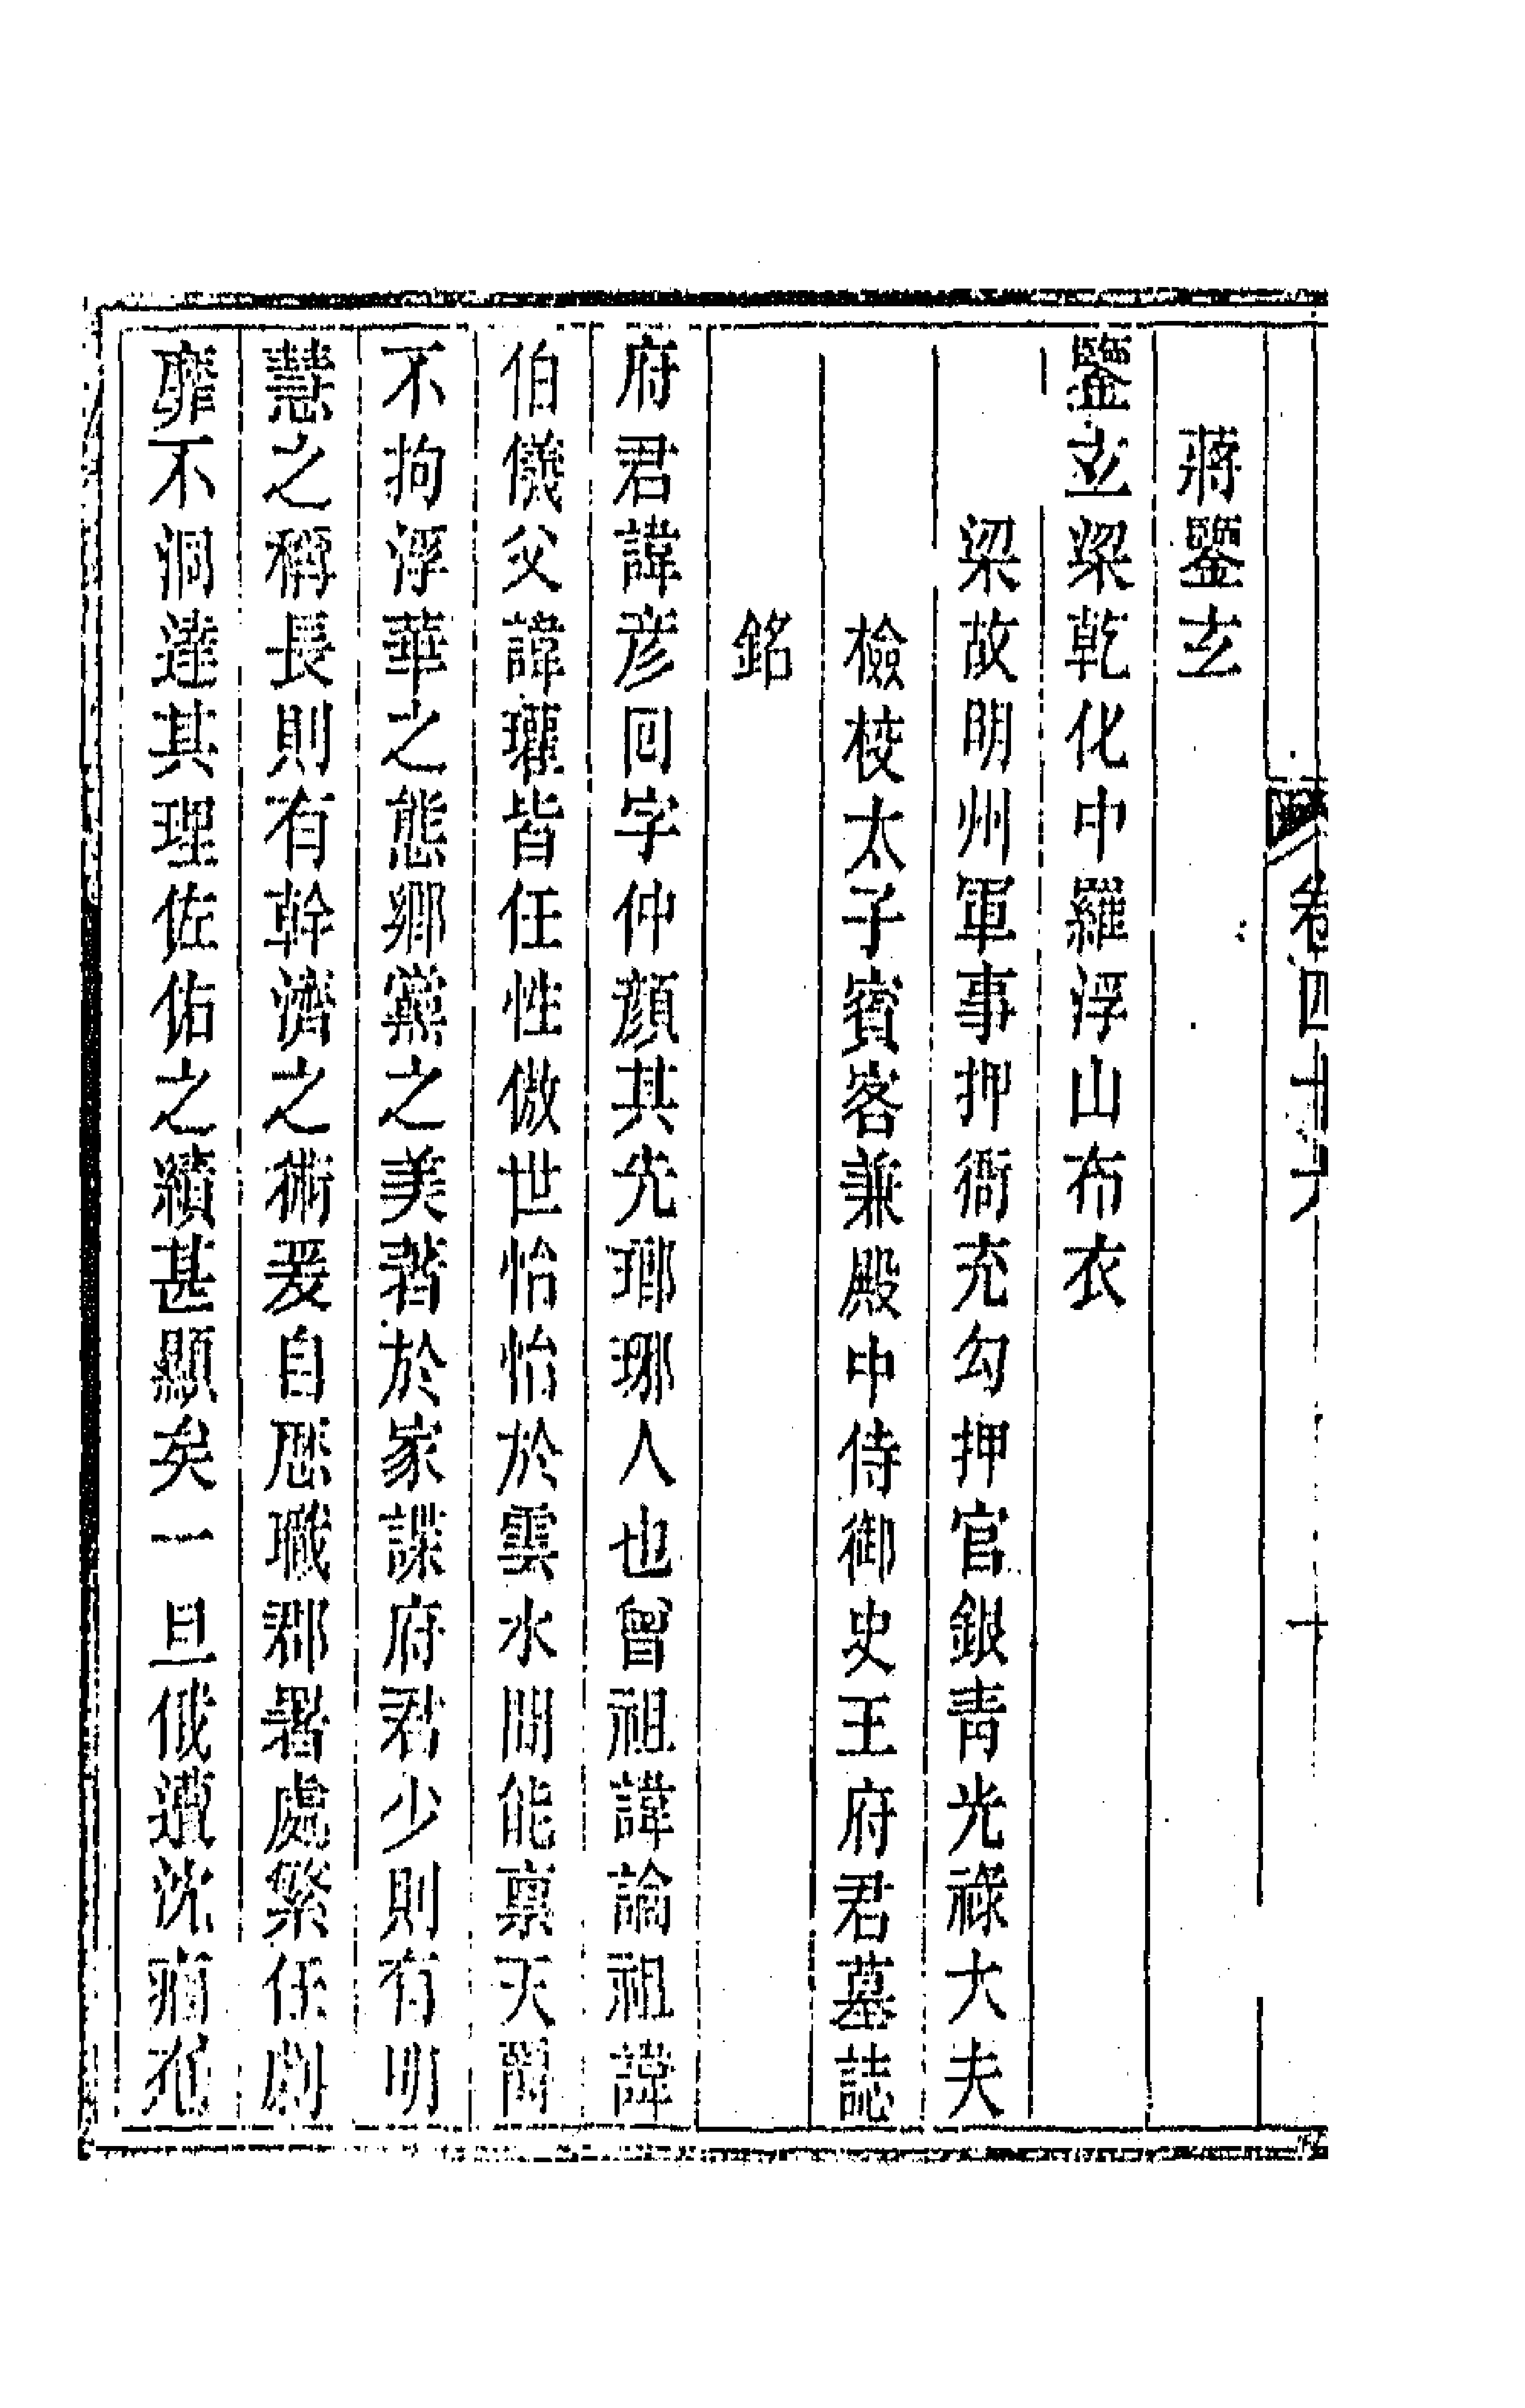 卷四十六
十
蔣鑒玄
鑒玄梁乾化中羅浮山布衣
梁故明州軍事押衙充勾押官銀青光祿大夫
檢校太子賓客兼殿中侍御史王府君墓誌
銘
府君諱彥回字仲顏其先瑯琊人也曾祖諱論祖諱
伯儀父諱瓘皆任性傲世怡怡於雲水間能稟天爵
不拘浮華之態鄉黨之美著於家諜府君少則有明
慧之稱長則有幹濟之術爰自歷職郡署處繁任劇
靡不洞達其理佐佑之績甚顯矣一旦俄遘沈痾